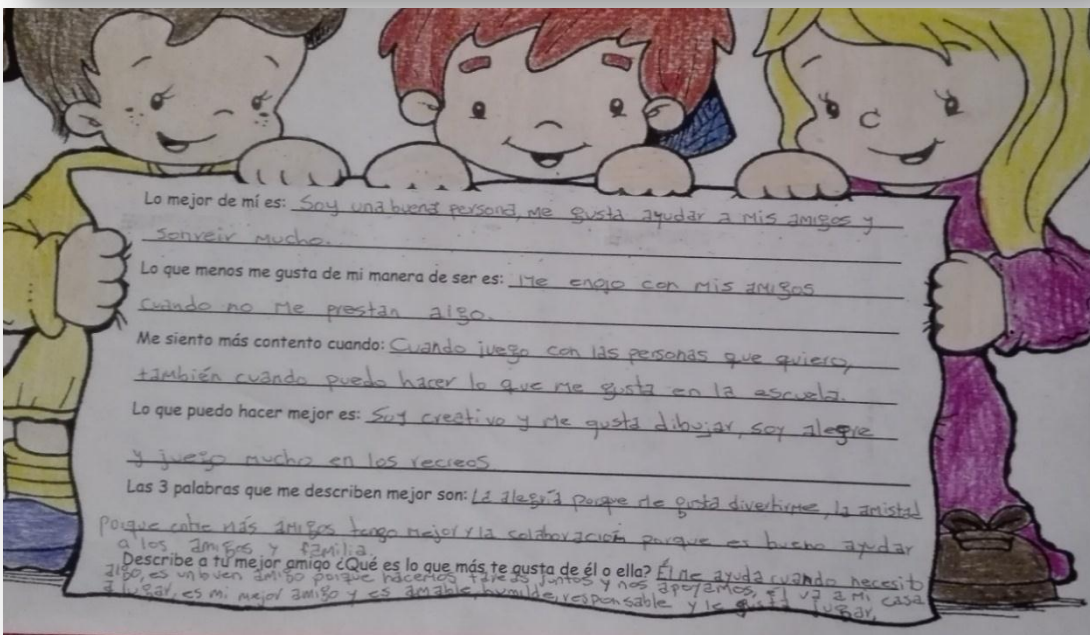 Lo mejor de mí es: Soy una buena persona, me gusta ayudar a mis amigos y
sonreir mucho.
Lo que menos me gusta de mi manera de ser es: Me enojo con mis amigos
cuando no me prestan algo.
Me siento más contento cuando: Cuando juego con las personas que quiero,
también cuando puedo hacer lo que me gusta en la escuela.
Lo que puedo hacer mejor es: Soy creativo y me gusta dibujar, soy alegre
y juego mucho en los recreos
Las 3 palabras que me describen mejor son: La alegría porque me gusta divertirme, la amistad
porque entre más amigos tengo mejor y la colaboración porque es bueno ayudar
a los amigos y familia.
Describe a tu mejor amigo ¿Qué es lo que más te gusta de él o ella? Él me ayuda cuando necesito
algo, es un buen amigo porque hacemos tareas juntos y nos apoyamos, el va a mi casa
a jugar, es mi mejor amigo y es amable, humilde, responsable y le gusta jugar.